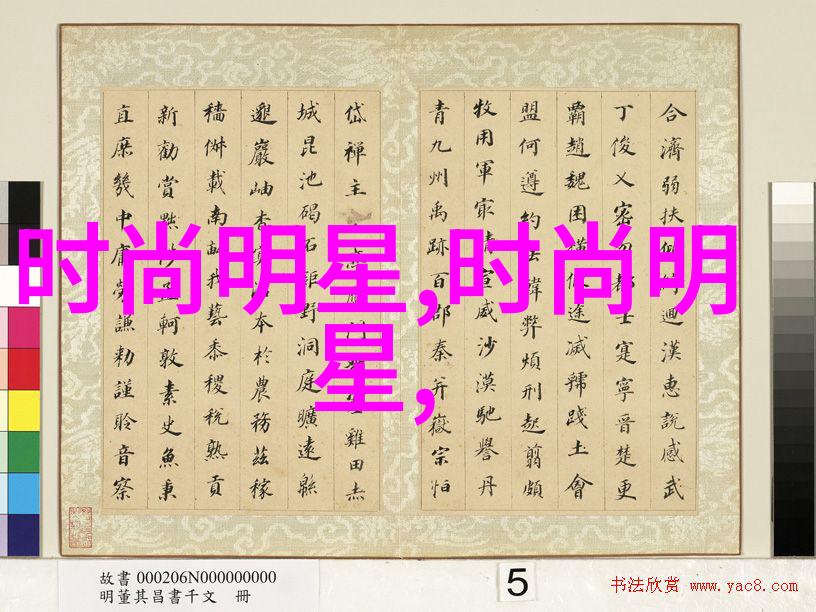 时尚明星,时尚明
星,
合濟弱扶迴漢惠說感武
丁俊乂密士寔寧晉楚更
霸趙魏困橫途滅虢踐土會
盟何遵約法韓弊煩刑起翦頗
牧用軍最精宣威沙漠馳譽丹
青九州禹跡百郡秦并嶽宗恒
岱禪主門雞田赤
城昆池碣石鉅野洞庭曠遠緜
邈巖岫杳冥治本於農務茲稼
穡俶載南畝我藝黍稷稅熟貢
新勸賞黜陟孟軻敦素史魚秉
直庶幾中庸勞謙勑謹聆音察
故書 000206N000000000
明董其昌書千文 冊
5
书法欣赏 www.yac8.com